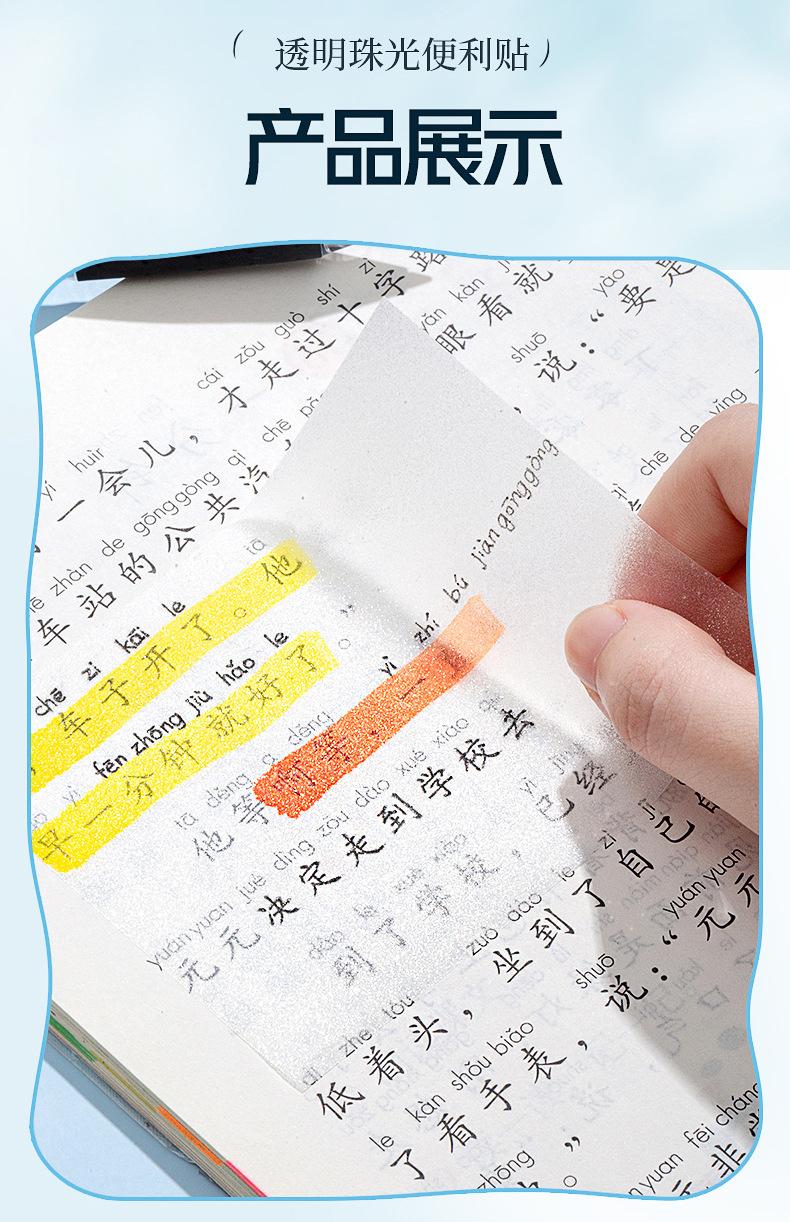 （透明珠光便利贴）
产品展示
cái zǒu guò shí zì
才走过十字路
yǎn kàn jiù
眼看就
yào
“要是
shuō
说：
yí huìr
一会儿，
chē zhàn de gōnggòng qì chē
车站的公共汽
chē de yǐng
chē zi kāi le tā
车子开了。他
yì fēn zhōng jiù hǎo le
早一分钟就好了。”
tā děng a děng yì zhí bú jiàn gōnggòng
他等啊等，一
yuányuan jué dìng zǒu dào xué xiào qù
元元决定走到学校去
dào le xué xiào yǐ jīng
到了学校，已经
zuò dào le zì jǐ
坐到了自己
dī zhe tóu
低着头，
shuō yuányuan
说：“元元
le kàn shǒu biǎo
了看手表，
zhōng
yuányuan fēi cháng
元非